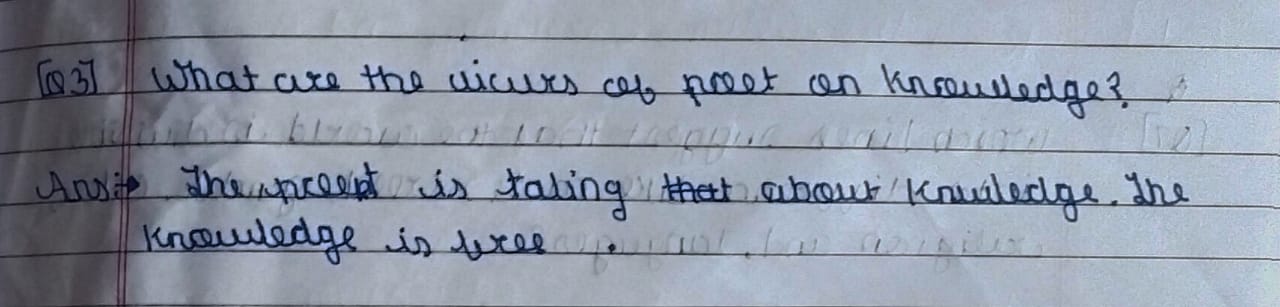 [Q3] What are the views of poet on knowledge?
Ans:→ The poet is taling that about knowledge. The
knowledge is free .